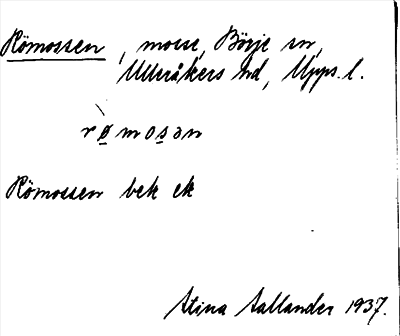 Römossen, mosse, Börje sn,
Ulleråkers hd, Upps. l.
rø̀mosan
Römossen bek ek
Stina Sallander 1937.